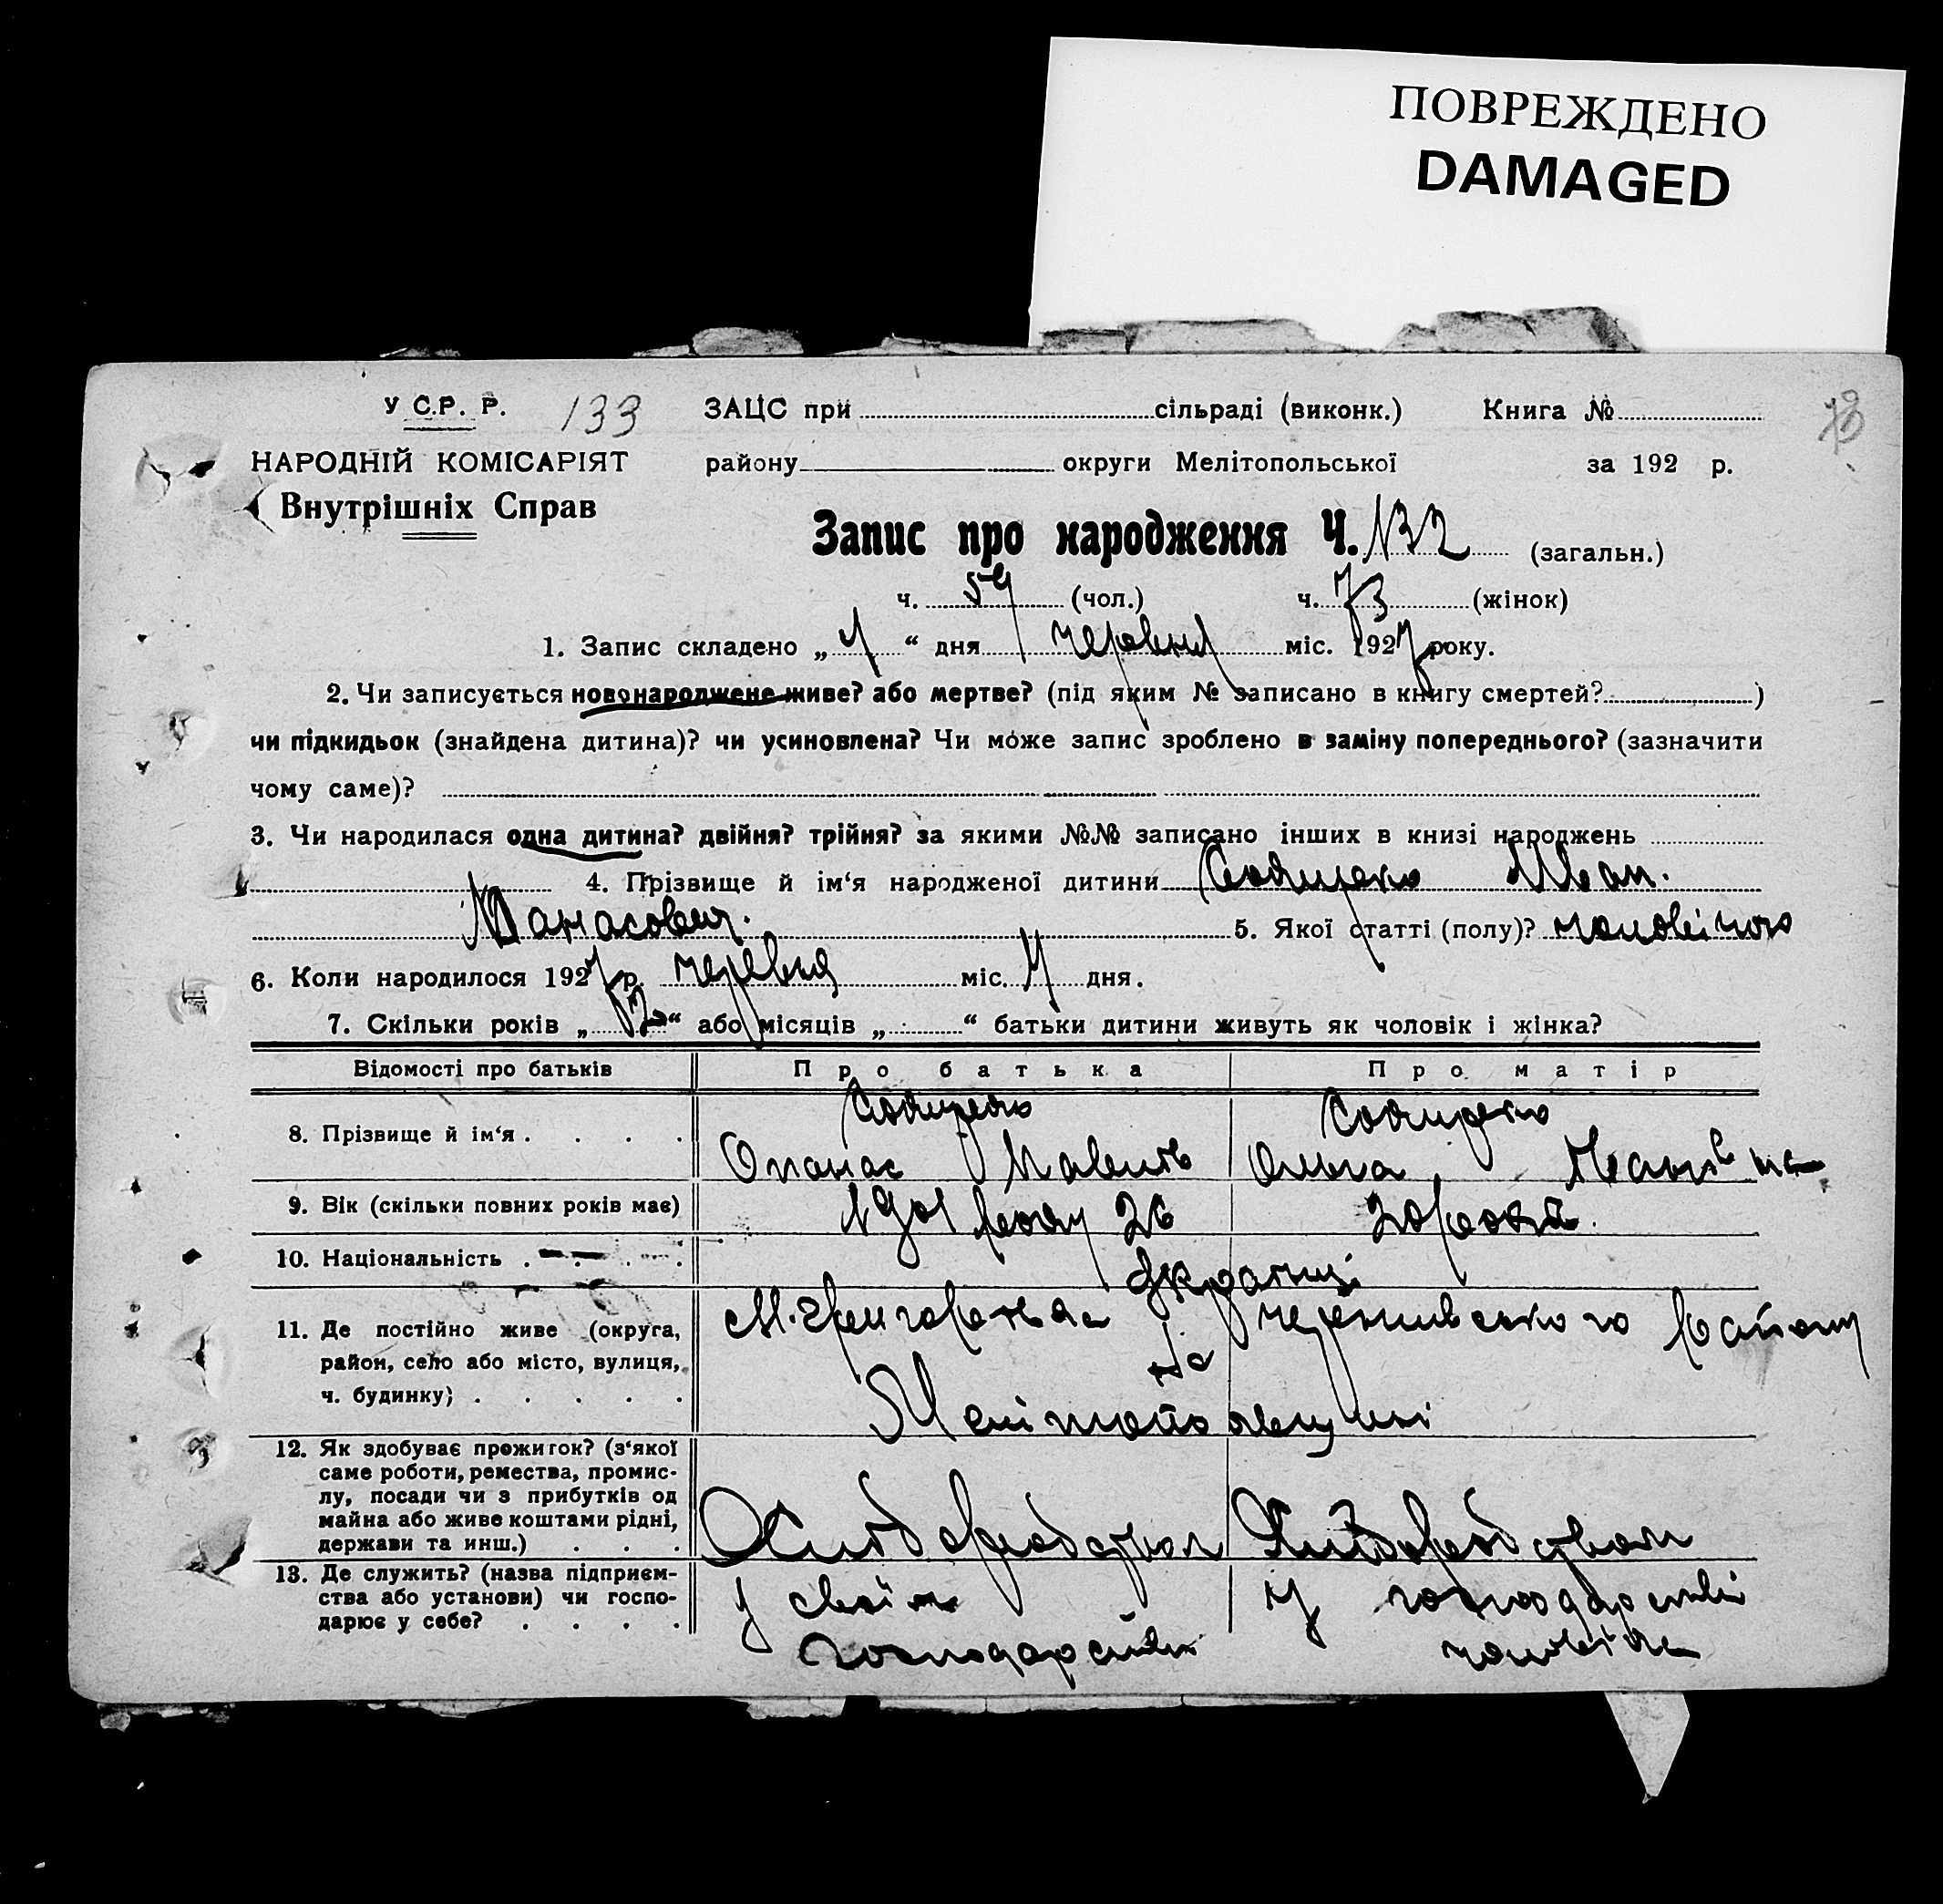 ПОВРЕЖДЕНО
DAMAGED
У С.Р. Р. 133 ЗАЦС при сільраді (виконк.) Книга №
НАРОДНІЙ КОМІСАРІЯТ району округи Мелітопольської за 192 р.
Внутрішніх Справ
Запис про народження Ч. 132 (загальн.)
ч. 59 (чол.) ч. 73 (жінок)
1. Запис складено „ “ дня червня міс. 1927 року.
2. Чи записується новонароджене живе? або мертве? (під яким № записано в книгу смертей? )
чи підкидьок (знайдена дитина)? чи усиновлена? Чи може запис зроблено в заміну попереднього? (зазначити
чому саме)?
3. Чи народилася одна дитина? двійня? трійня? за якими №№ записано інших в книзі народжень
4. Прізвище й ім‘я народженої дитини Іван.
5. Якої статті (полу)? чоловічого
6. Коли народилося 1927 р. червня міс. дня.
7. Скільки років „ “ або місяців „ “ батьки дитини живуть як чоловік і жінка?
Відомості про батьків Про батька Про матір
8. Прізвище й ім‘я . . . .
Опанас Ольга
9. Вік (скільки повних років має) року 26
10. Національність . . . . Українці
11. Де постійно живе (округа, району
район, село або місто, вулиця, на
ч. будинку) . . . . . Мелітопольщині
12. Як здобуває прожиток? (з‘якої
саме роботи, ремества, промис-
лу, посади чи з прибутків од
майна або живе коштами рідні, Хліборобством Хліборобством
держави та инш.) . . .
13. Де служить? (назва підприєм-
ства або установи) чи госпо- у своїм у господарстві
дарює у себе? . . . . господарстві чоловіка